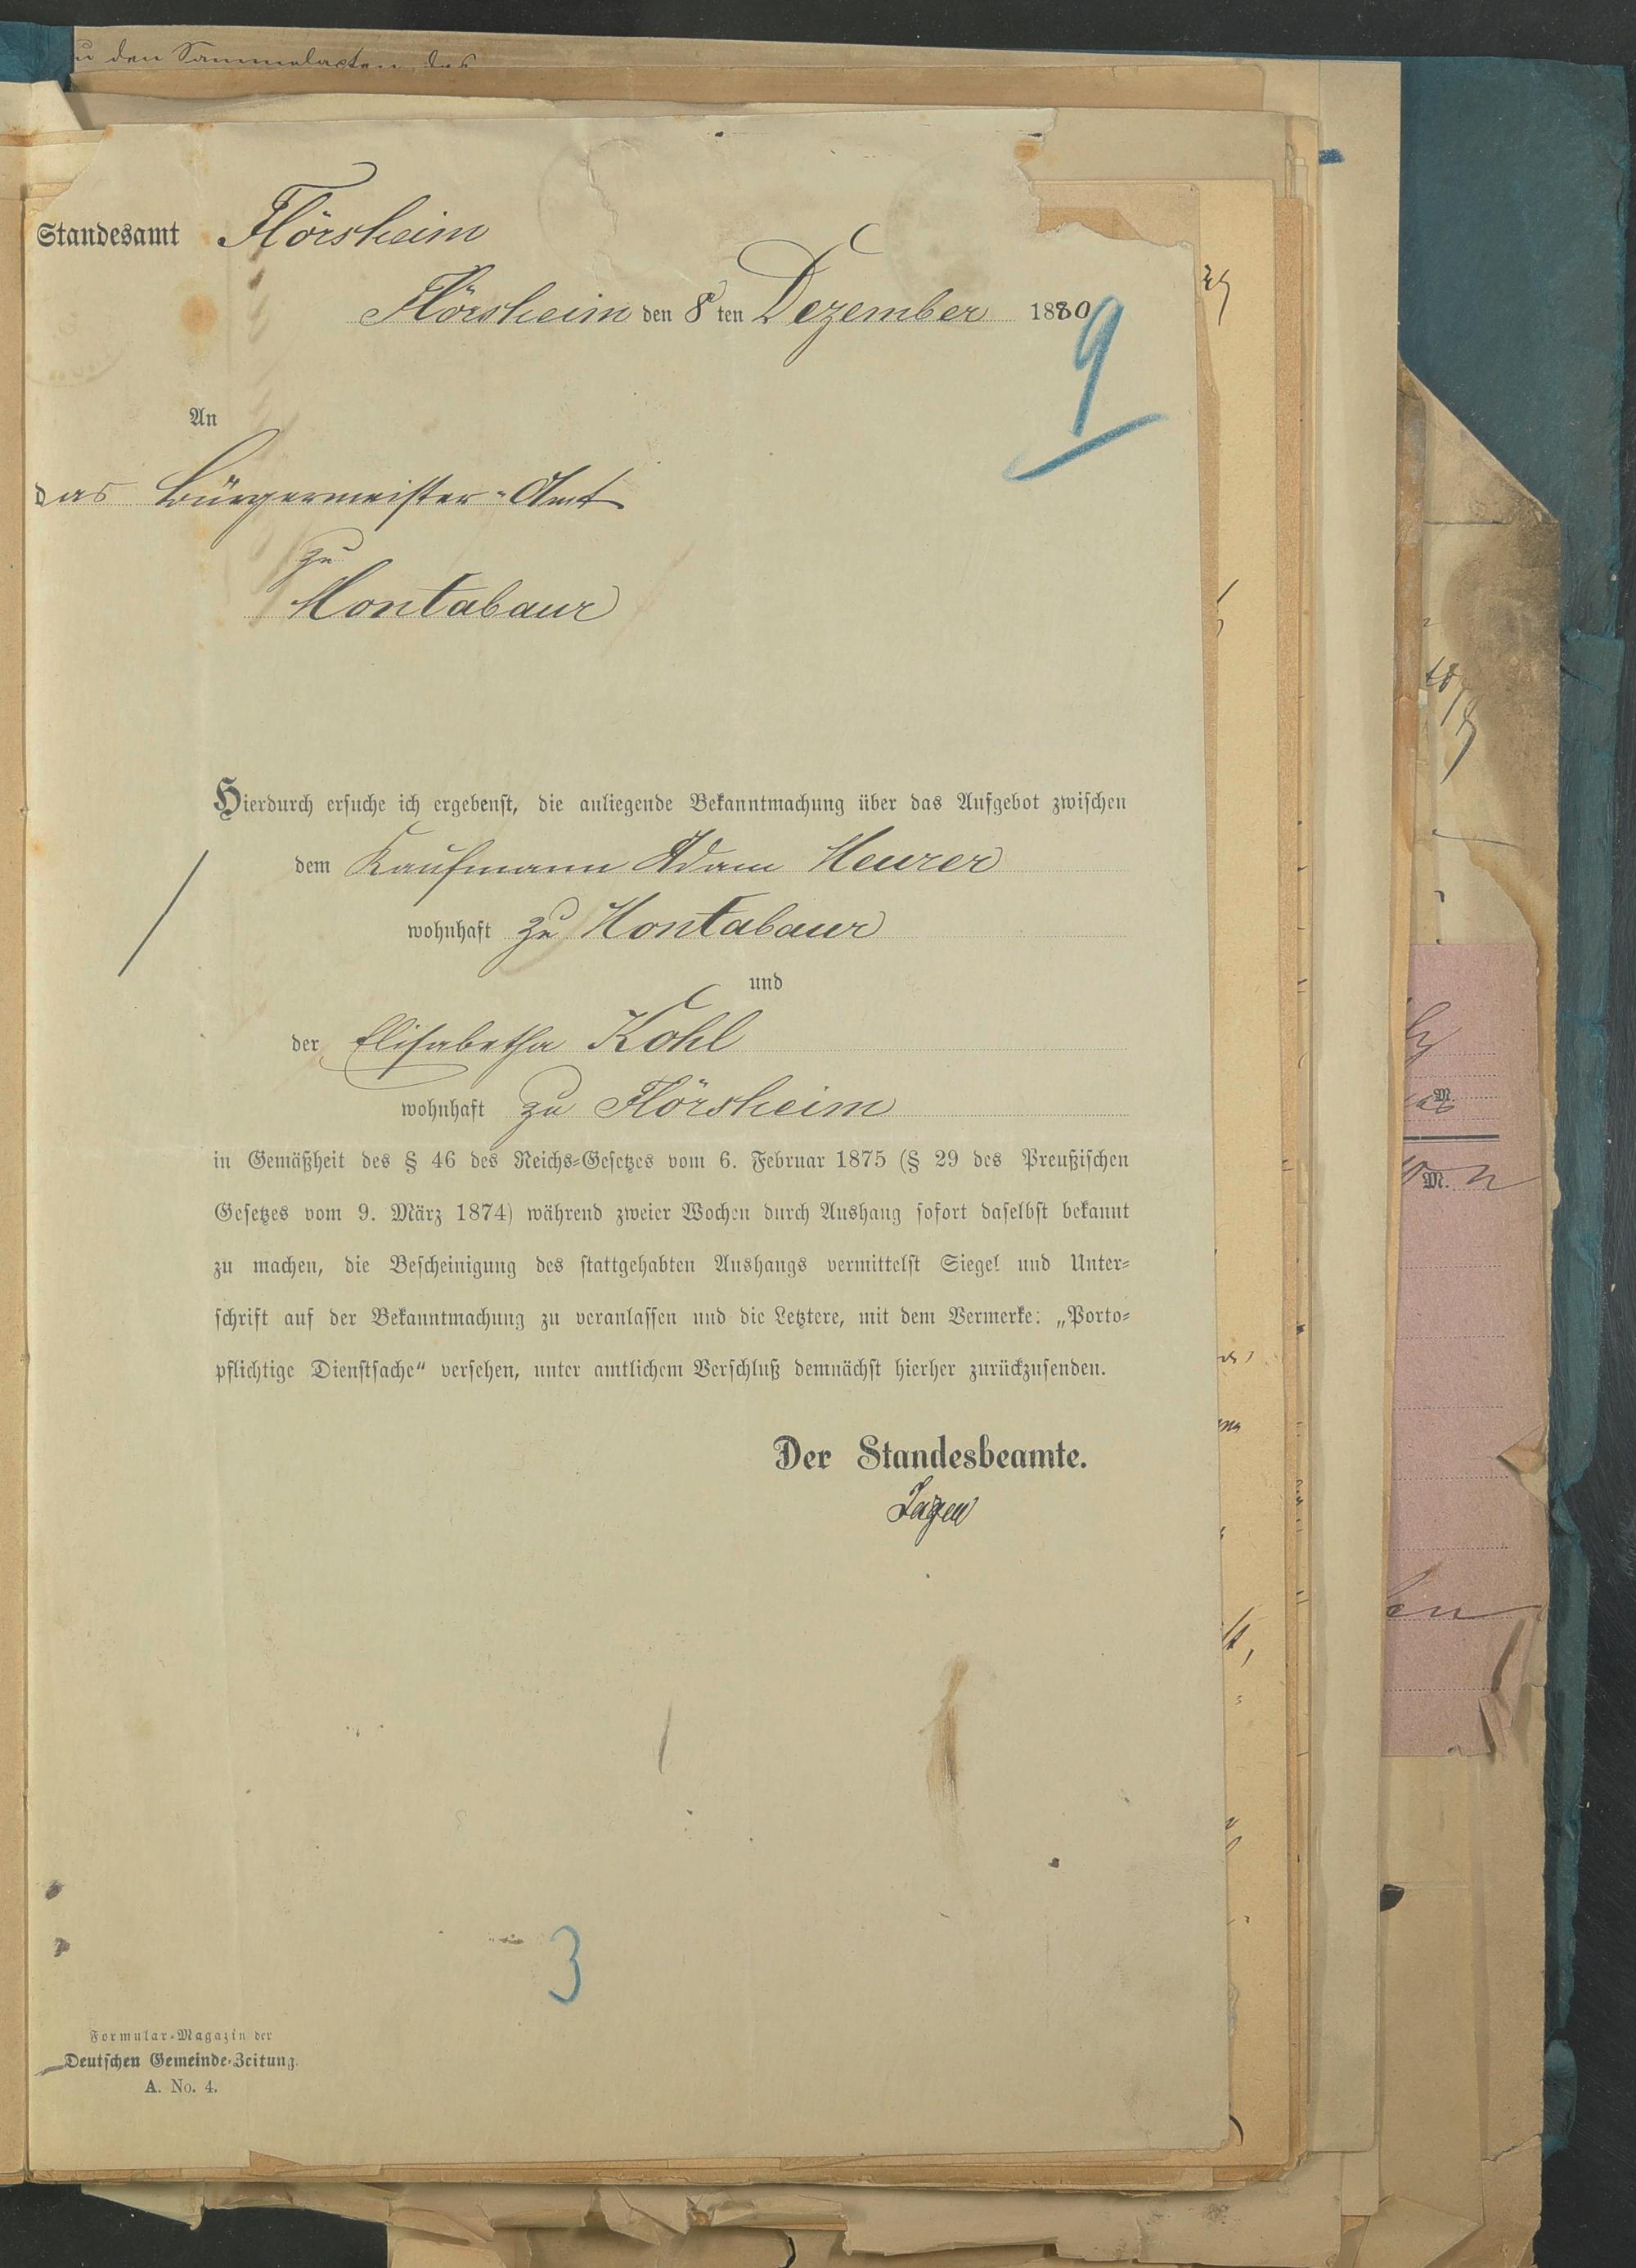 u den Sammelacten des
Standesamt Flörsheim
Flörsheim den 8 ten Dezember 1880
9
An
das Bürgermeister-Amt
zu
Montabaur
Hierdurch ersuche ich ergebenst, die anliegende Bekanntmachung über das Aufgebot zwischen
dem Kaufmann Adam Meurer
wohnhaft zu Montabaur
und
der Elisabetha Kohl
wohnhaft zu Flörsheim
in Gemäßheit des § 46 des Reichs-Gesetzes vom 6. Februar 1875 (§ 29 des Preußischen
Gesetzes vom 9. März 1874) während zweier Wochen durch Aushang sofort daselbst bekannt
zu machen, die Bescheinigung des stattgehabten Aushangs vermittelst Siegel und Unter-
schrift auf der Bekanntmachung zu veranlassen und die Letztere, mit dem Vermerke: „Porto-
pflichtige Dienstsache“ versehen, unter amtlichem Verschluß demnächst hierher zurückzusenden.
Der Standesbeamte.
3
Formular-Magazin der
Deutschen Gemeinde-Zeitung.
A. No. 4.
M.
M.